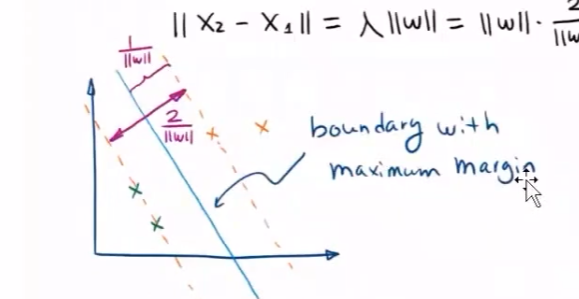 || X₂ - X₁ || = λ ||w|| = ||w|| · 2
||w
1
||w||
2
||w||
boundary with
maximum margin